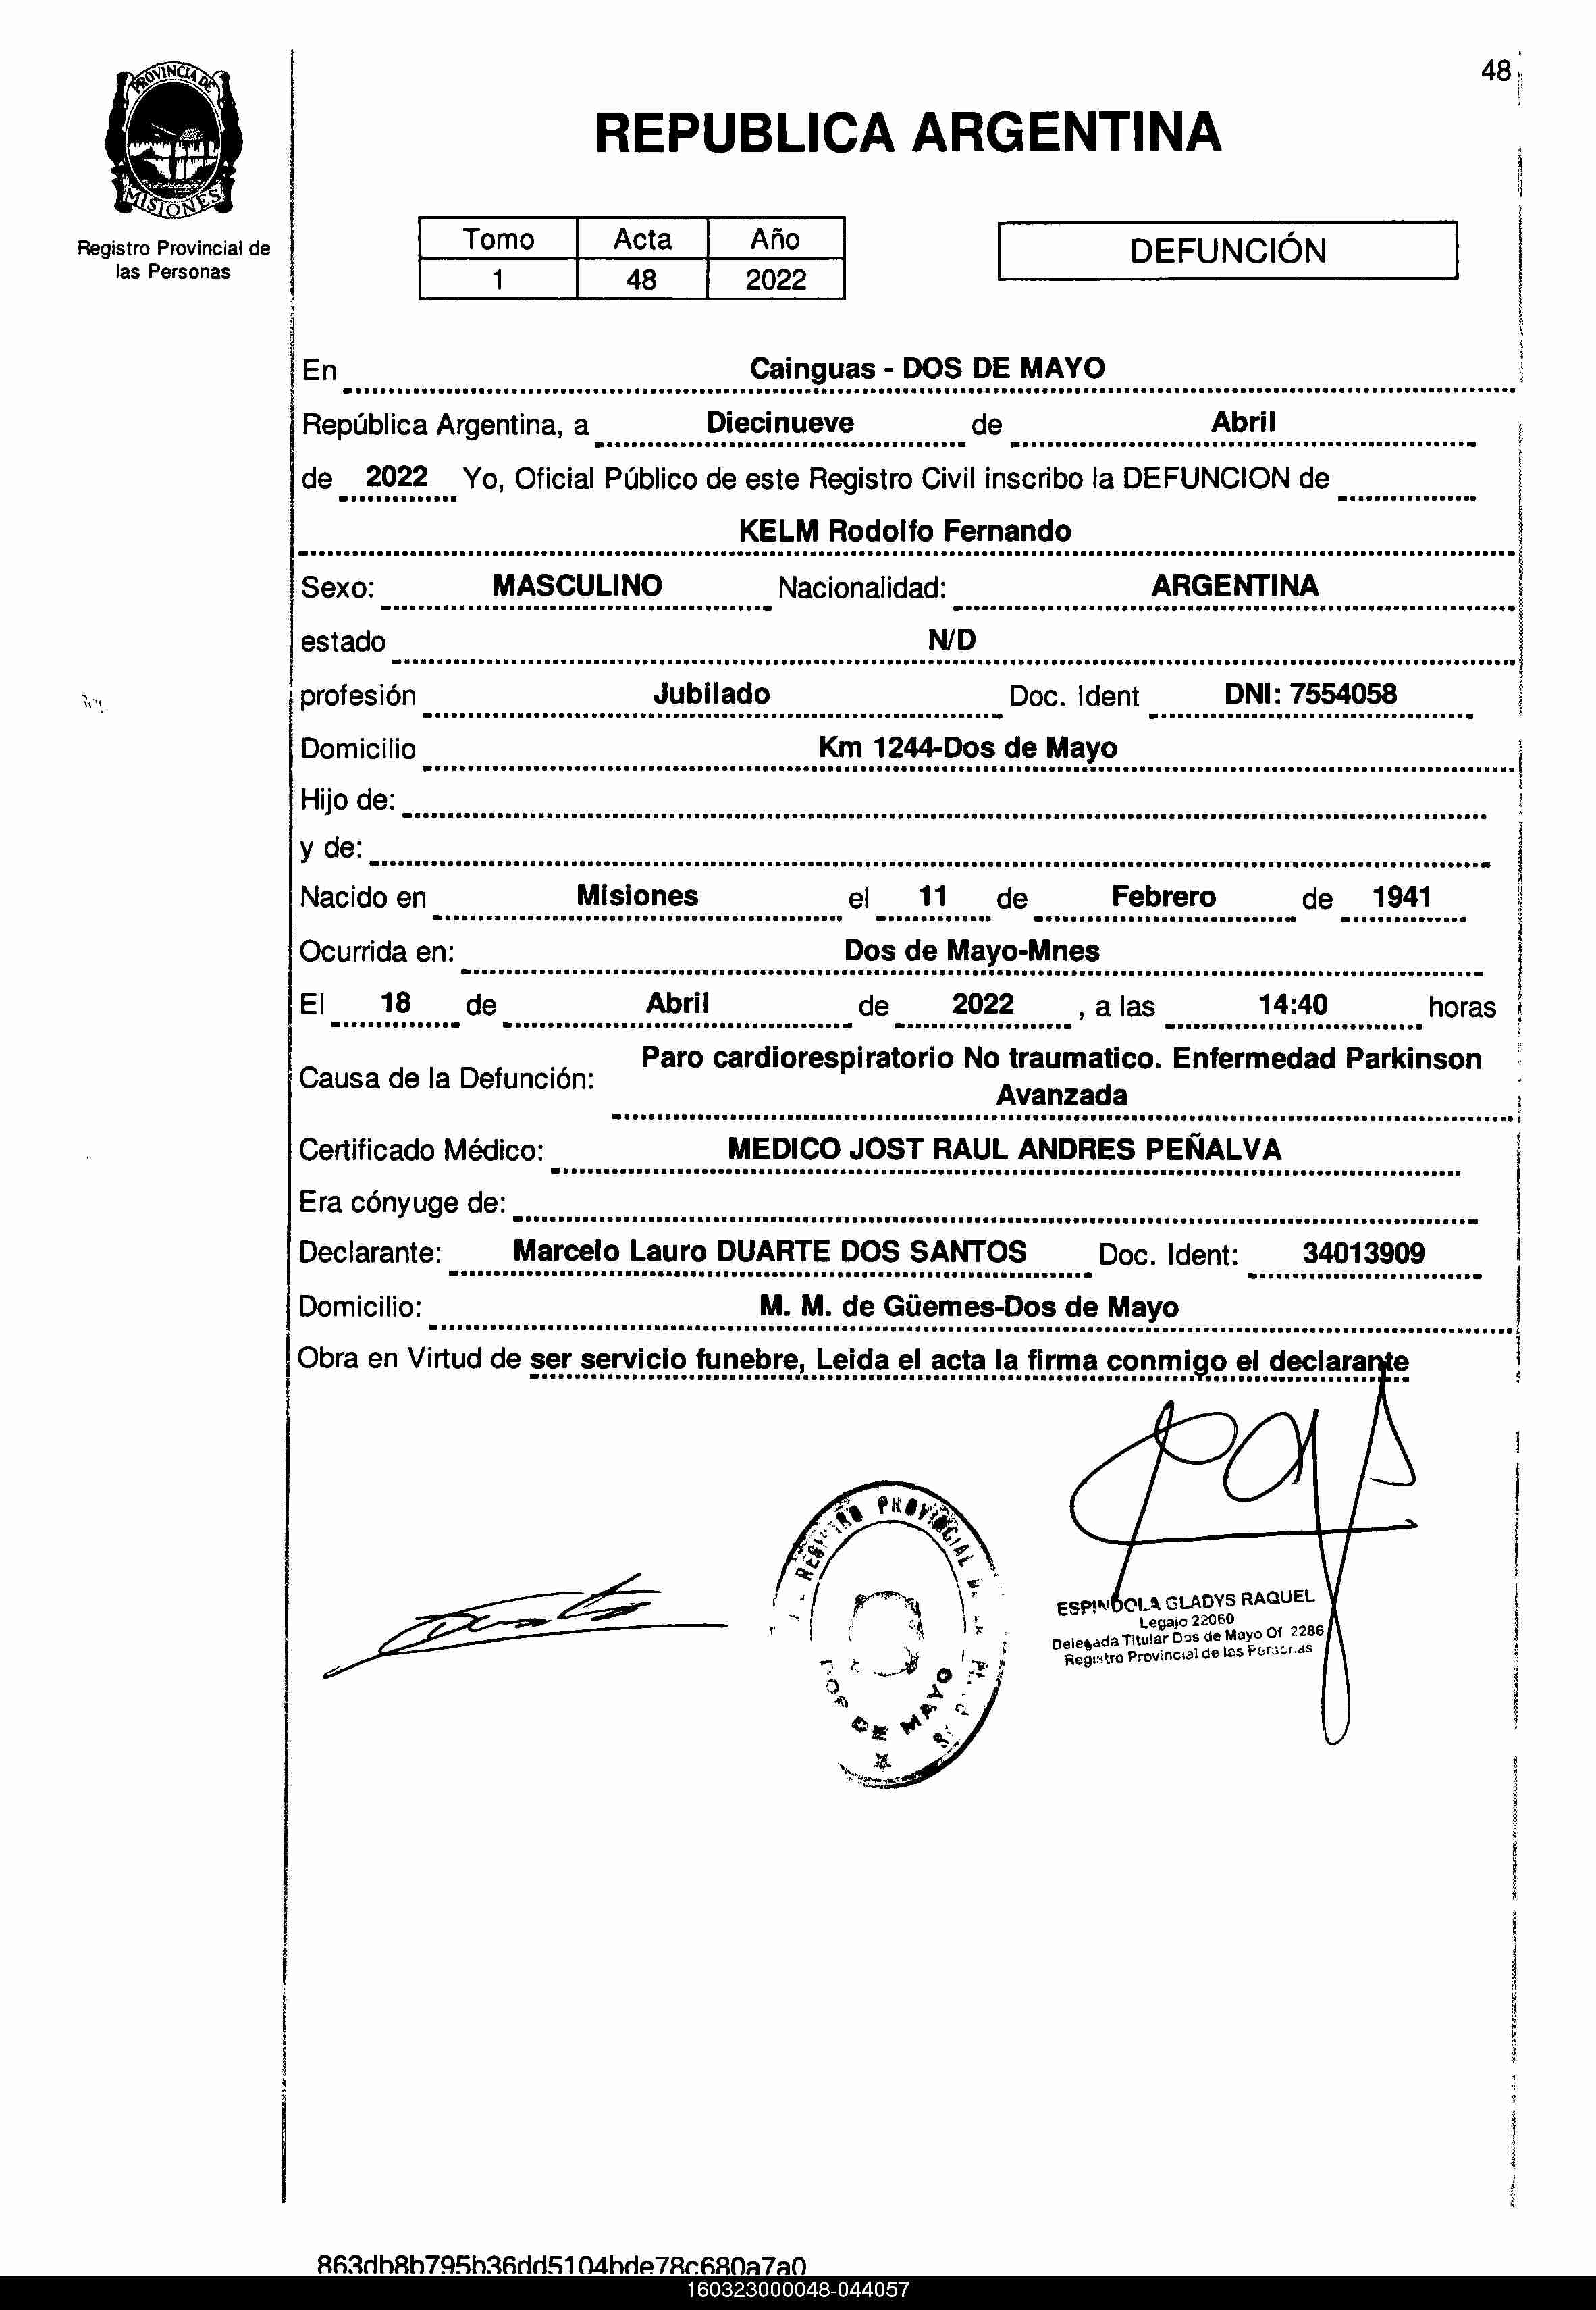 48
PROVINCIA DE
MISIONES
Registro Provincial de
las Personas
REPUBLICA ARGENTINA
Tomo Acta Año
1 48 2022
DEFUNCIÓN
En Cainguas - DOS DE MAYO
República Argentina, a Diecinueve de Abril
de 2022 Yo, Oficial Público de este Registro Civil inscribo la DEFUNCION de
KELM Rodolfo Fernando
Sexo: MASCULINO Nacionalidad: ARGENTINA
estado N/D
profesión Jubilado Doc. Ident DNI: 7554058
Domicilio Km 1244-Dos de Mayo
Hijo de:
y de:
Nacido en Misiones el 11 de Febrero de 1941
Ocurrida en: Dos de Mayo-Mnes
El 18 de Abril de 2022 , a las 14:40 horas
Causa de la Defunción: Paro cardiorespiratorio No traumatico. Enfermedad Parkinson
Avanzada
Certificado Médico: MEDICO JOST RAUL ANDRES PEÑALVA
Era cónyuge de:
Declarante: Marcelo Lauro DUARTE DOS SANTOS Doc. Ident: 34013909
Domicilio: M. M. de Güemes-Dos de Mayo
Obra en Virtud de ser servicio funebre, Leida el acta la firma conmigo el declarante
REGISTRO PROVINCIAL DE
DOS DE MAYO
ESPINDOLA GLADYS RAQUEL
Legajo 22060
Delegada Titular Dos de Mayo Of 2286
Registro Provincial de las Personas
863db8b795b36dd5104bde78c680a7a0
160323000048-044057